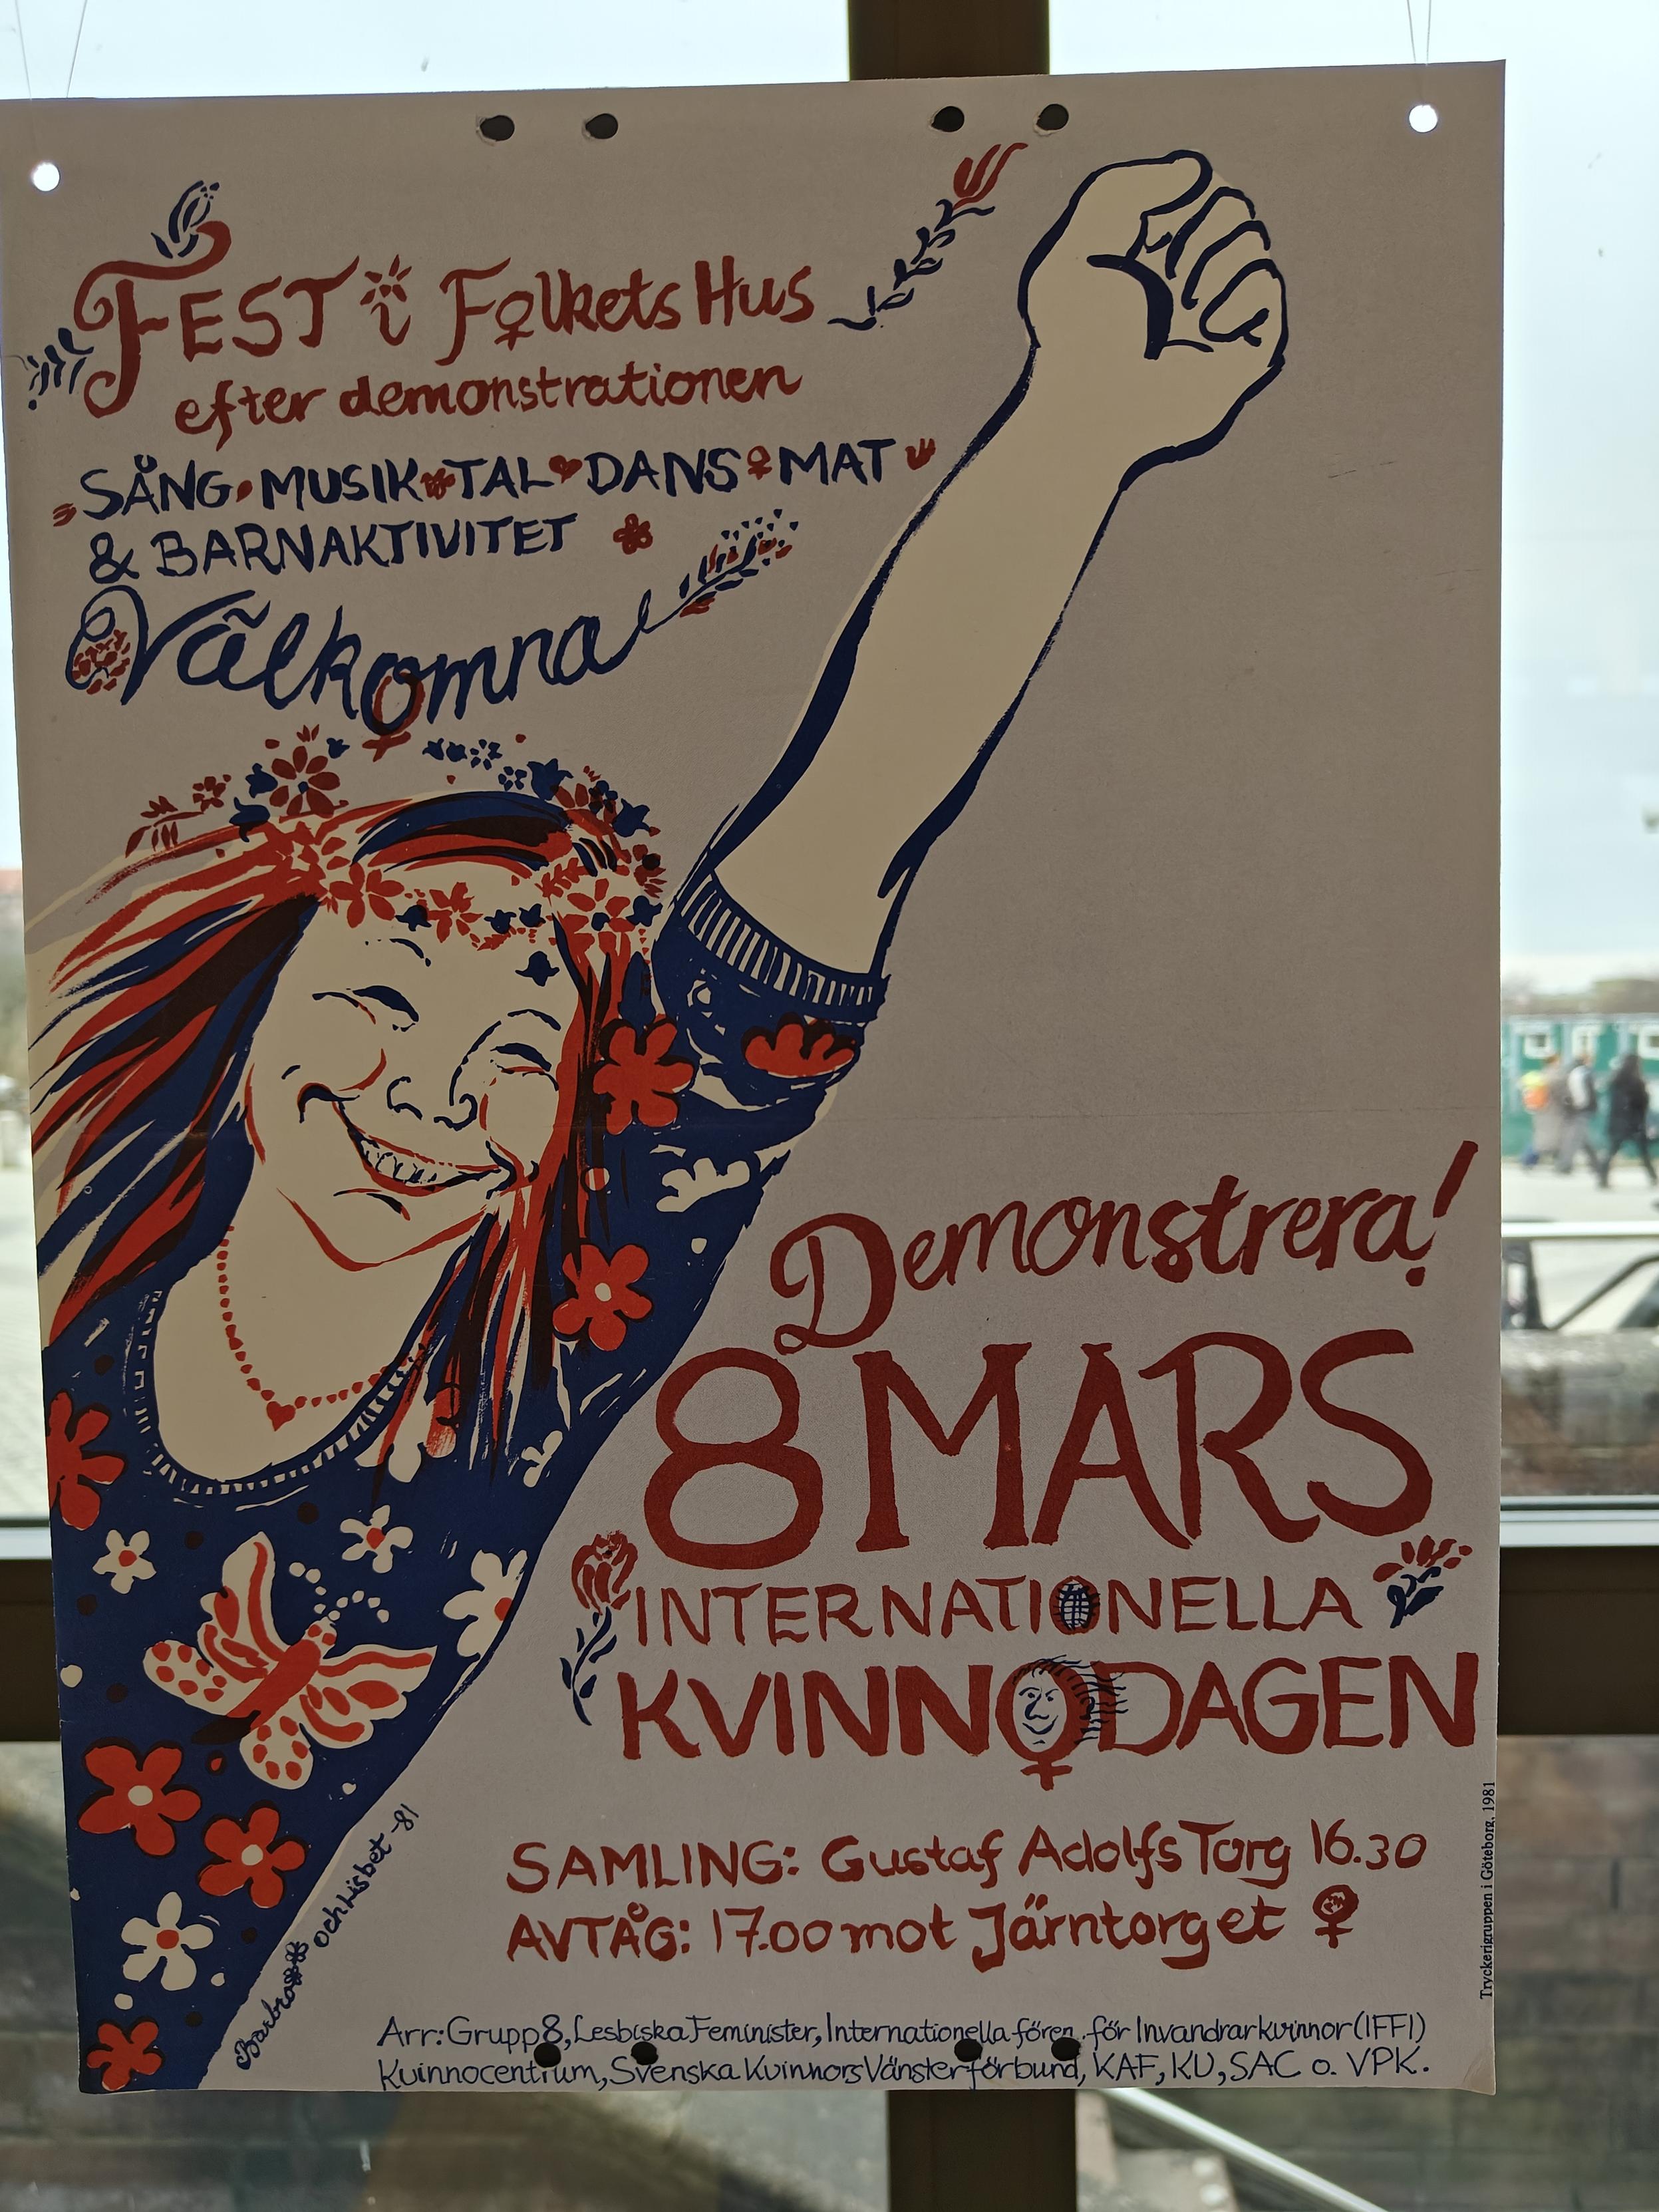 FEST i Folkets Hus
efter demonstrationen
SÅNG MUSIK TAL DANS MAT
& BARNAKTIVITET
Välkomna
Demonstrera!
8 MARS
INTERNATIONELLA
KVINNODAGEN
SAMLING: Gustaf Adolfs Torg 16.30
AVTÅG: 17.00 mot Järntorget
Barbro och Lisbet -81
Arr: Grupp 8, Lesbiska Feminister, Internationella fören. för Invandrarkvinnor (IFFI)
Kvinnocentrum, Svenska Kvinnors Vänsterförbund, KAF, KU, SAC o. VPK.
Tryckerigruppen i Göteborg, 1981